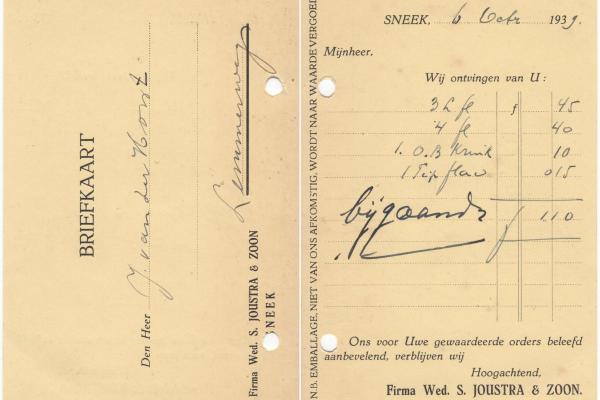 BRIEFKAART
Den Heer J. van der Horst
Lemmerweg
Firma Wed. S. JOUSTRA & ZOON
SNEEK
N.B. EMBALLAGE, NIET VAN ONS AFKOMSTIG, WORDT NAAR WAARDE VERGOED
SNEEK, 6 Octr 1939.
Mijnheer.
Wij ontvingen van U:
3 L fl f 45
4 fl 40
1. O.B Kruik 10
1 Tip flac 015
bijgaande f 1.10
Ons voor Uwe gewaardeerde orders beleefd
aanbevelend, verblijven wij
Hoogachtend,
Firma Wed. S. JOUSTRA & ZOON.